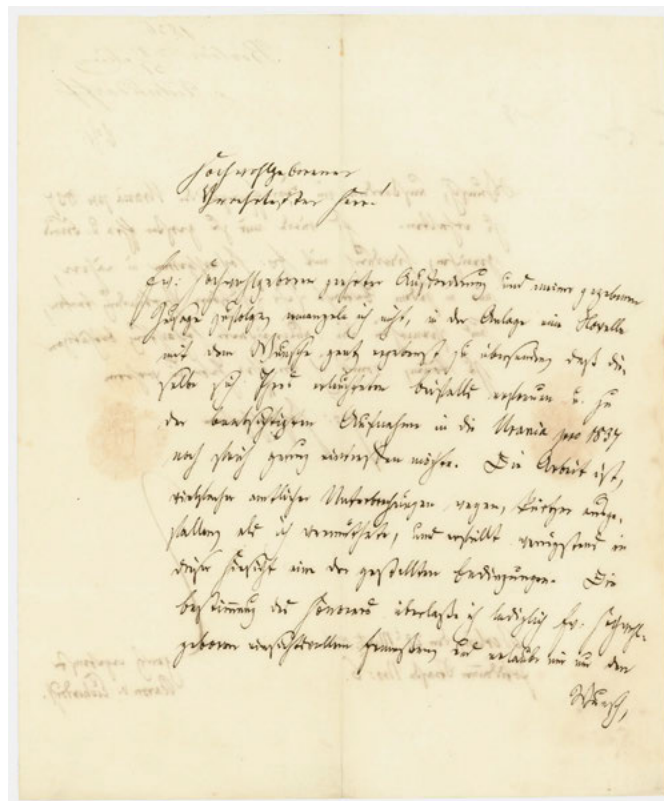 Hochwohlgeborener
Verehrtester Herr!
Ew: Hochwohlgeboren geehrter Aufforderung und meiner gegebenen
Zusage zufolge, ermangele ich nicht, in der Anlage eine Novelle
mit dem Wunsche ganz ergebenst zu übersenden, daß die-
selbe sich Ihres erlauchten Beifalls erfreuen u. zu
der beabsichtigten Aufnahme in die Urania pro 1837
noch früh genug eintreffen möchte. Die Arbeit ist,
vielfacher amtlicher Unterbrechungen wegen, kürzer ausge-
fallen als ich vermuthete, und erfüllt wenigstens in
dieser Hinsicht eine der gestellten Bedingungen. Die
Bestimmung des Honorars überlaße ich lediglich Ew: Hochwohl-
geboren einsichtsvollem Ermessen und erlaube mir nur den
Wunsch,